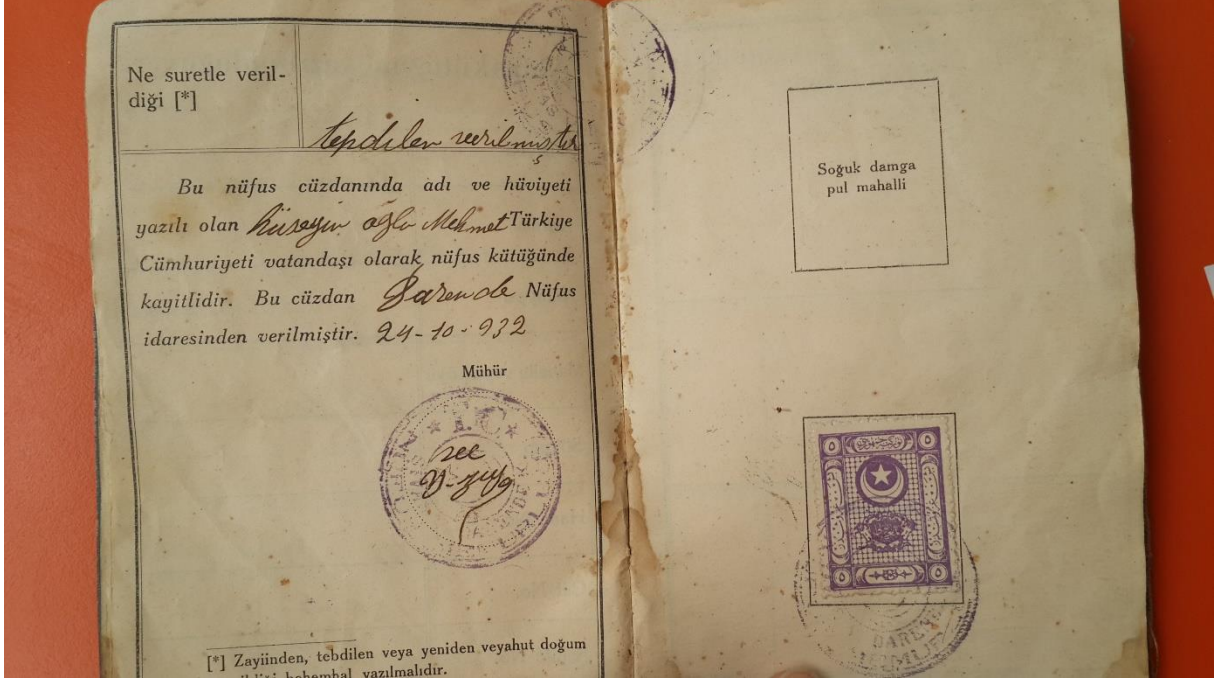 Ne suretle veril-
diği [*]
tepdilen verilmiştir
Bu nüfus cüzdanında adı ve hüviyeti
yazılı olan Hüseyin oğlu Mehmet Türkiye
Cümhuriyeti vatandaşı olarak nüfus kütüğünde
kayitlidir. Bu cüzdan Darende Nüfus
idaresinden verilmiştir. 24-10-932
Mühür
T.C
[*] Zayiinden, tebdilen veya yeniden veyahut doğum
behemhal yazılmalıdır.
Soğuk damga
pul mahalli
٥ ٥
٥ ٥
DAREN